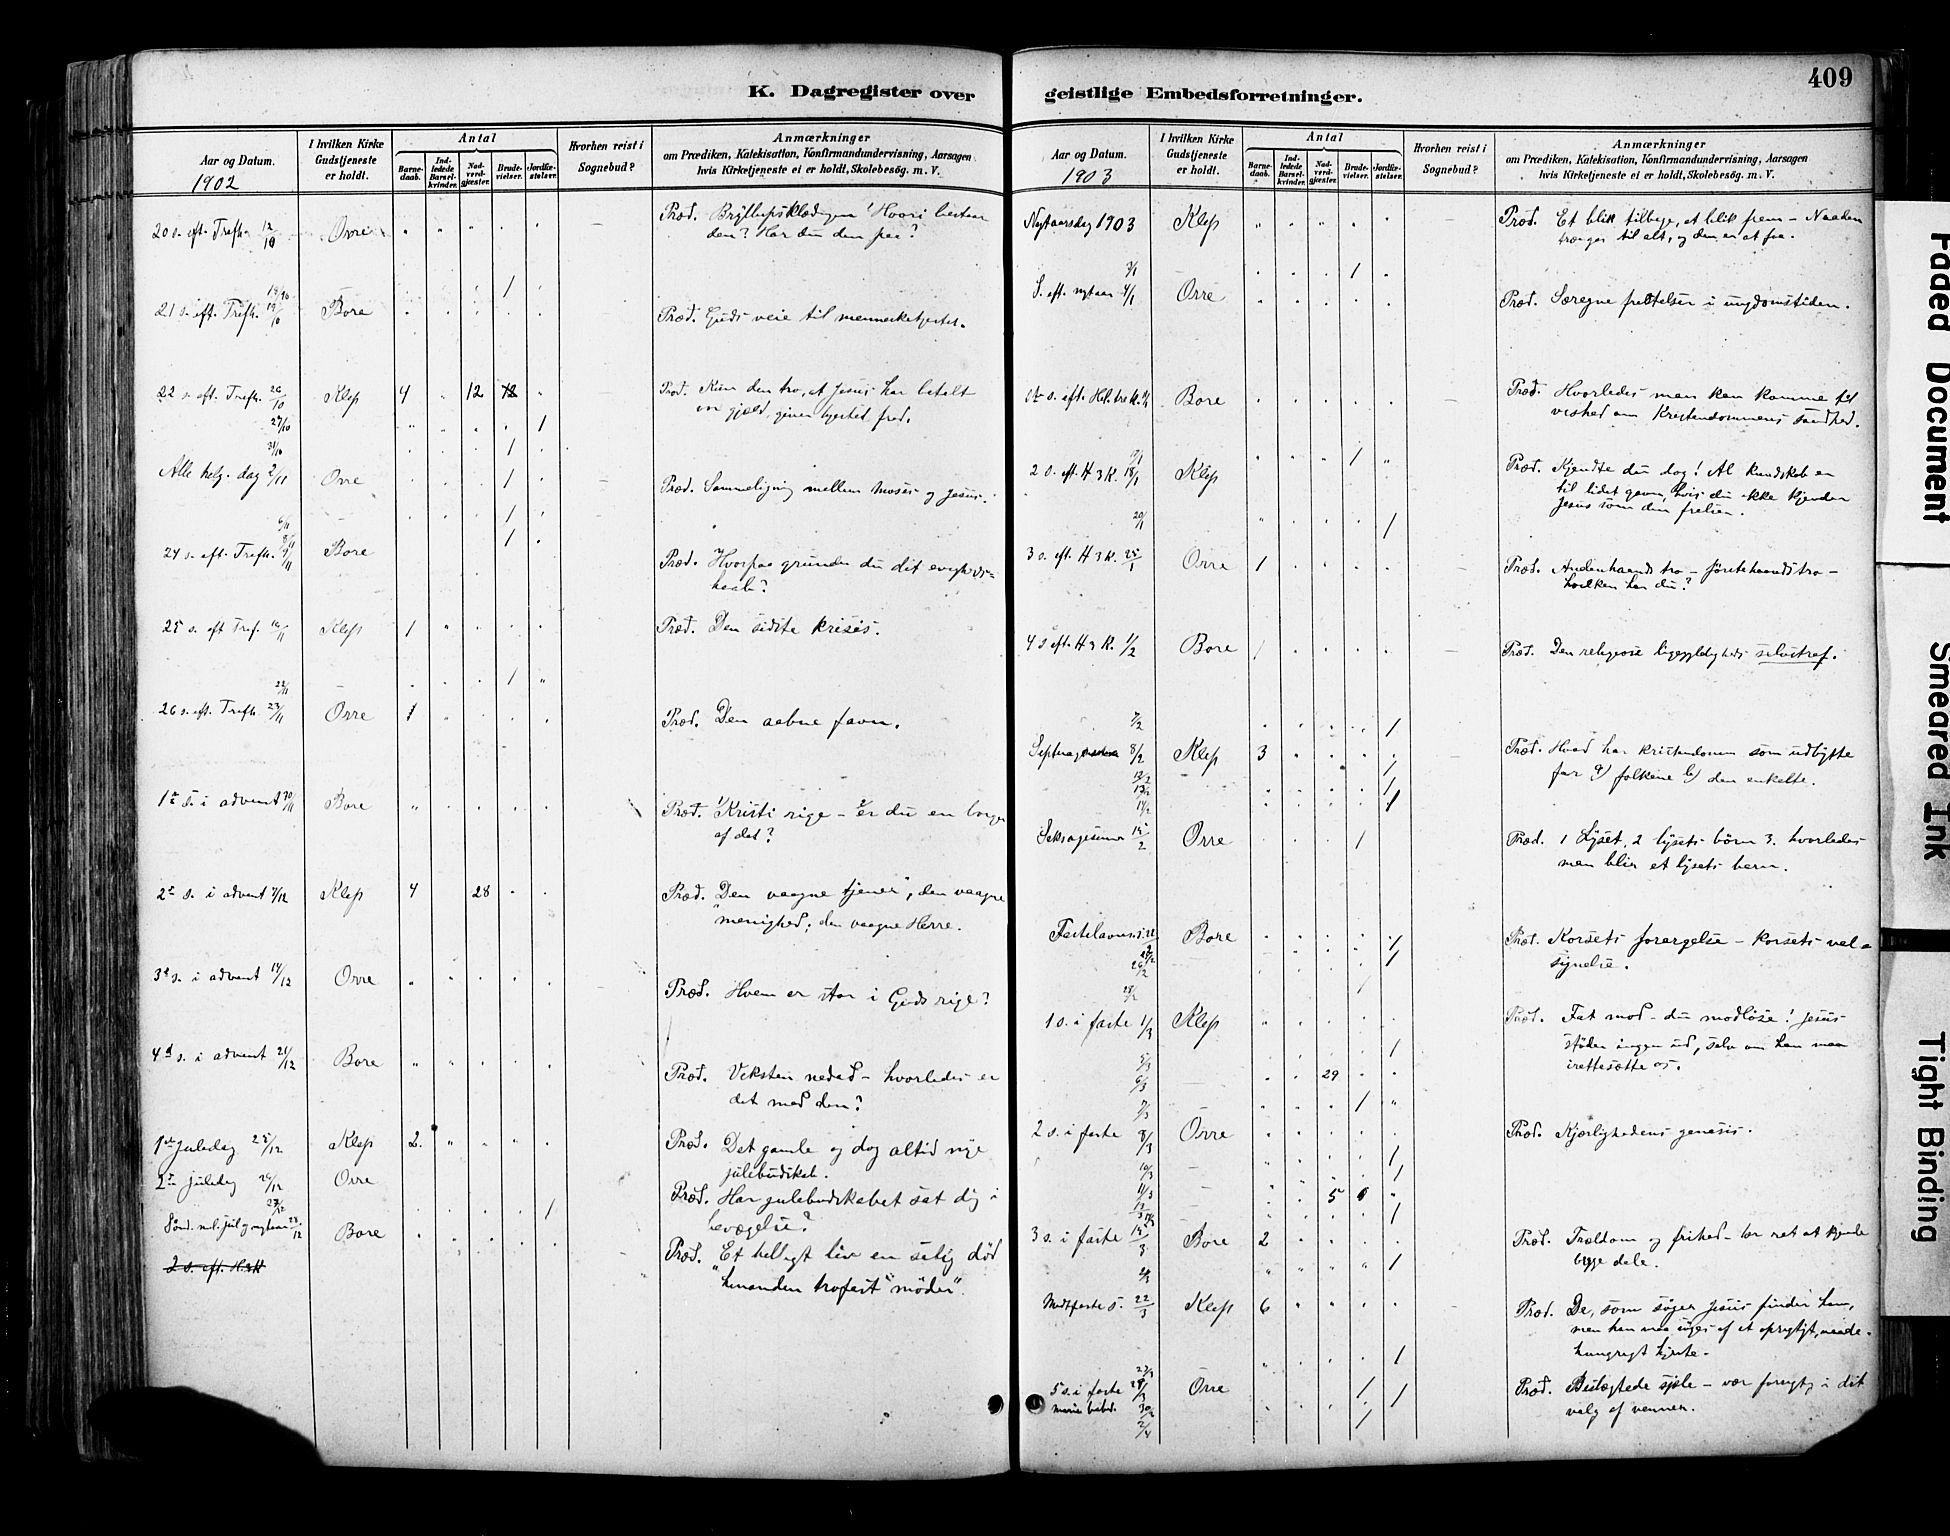 K. Dagregister over
Aar og Datum.
1902
I hvilken Kirke Gudstjeneste er holdt.
Antal
Barne-daab.
Ind-ledede Barsel-kvinder.
Nad-verd-gjæster.
Brude-vielser.
Jordfæ-stelser.
Hvorhen reist i Sognebud?
Anmærkninger
om Prædiken, Katekisation, Konfirmandundervisning, Aarsagen
hvis Kirketjeneste ei er holdt, Skolebesøg. m. V.
20 s. eft. Trefh. 12/10 Orre Præd. Bryllupsklædningen Hvori bestaar
den? Har du den paa?
19/10 1
21 s. eft. Trefh. 19/10 Bore Præd. Guds veie til menneskehjertet.
22 s. eft. Trefh. 26/10 Klep 4 12 Præd. Kun den tro, at Jesus har betalt
vor gjæld, giver hjertet fred.
27/10 1
31/10 1
Alle helg. dag 2/11 Orre 1 Præd. Sammeligning mellem Moses og Jesus.
6/11 1
8/11 1
24 s. eft. Trefh. 9/11 Bore Præd. Hvorpaa grunder du dit evigheds=
haab?
25 s. eft Tref. 16/11 Klep 1 Præd. Den sidste krisis.
22/11 1
26 s. eft. Trefh. 23/11 Orre 1 Præd. Den aabne favn.
1ste s. i advent 30/11 Bore Præd. 1/ Kristi rige - 2/ er du en borger
af det?
2den s. i advent 7/12 Klep 4 28 Præd. Den vaagne tjener, den vaagne
menighed; den vaagne Herre.
3die s. i advent 14/12 Orre Præd. Hvem er stor i Guds rige?
4de s. i advent 21/12 Bore Præd. Veksten nedad - hvorledes er
det med den?
1ste juledag 25/12 Klep 2 Præd. Det gamle og dog altid nye
julebudskab.
2den juledag 26/12 Orre Præd. Har julebudskabet sat dig i
bevægelse?
27/12 1
Sønd. mel. jul og nytaar 28/12 Bore Præd. Et helligt liv en salig død
hinanden trofast "møder".
2 s. eft. H3K
409
geistlige Embedsforretninger.
Aar og Datum.
1903
I hvilken Kirke Gudstjeneste er holdt.
Antal
Barne-daab.
Ind-ledede Barsel-kvinder.
Nad-verd-gjæster.
Brude-vielser.
Jordfæ-stelser.
Hvorhen reist i Sognebud?
Anmærkninger
om Prædiken, Katekisation, Konfirmandundervisning, Aarsagen
hvis Kirketjeneste ei er holdt, Skolebesøg. m. V.
Nytaarsdag 1903 Klep Præd. Et blik tilbage, et blik frem - Naaden
trænges til alt, og den er at faa.
3/1 1
S. eft. nytaar 4/1 Orre Præd. Særegne fristelser i ungdomstiden.
s. eft. Hel. tre K. Bore Præd. Hvorledes man kan komme til
vished om Kristendommens sandhed.
17/1 1
2 s. eft. H 3 K. 18/1 Klep Præd. Kjendte du dog! Al kundskab er
til lidet gavn, hvis du ikke kjender
Jesus som din frelser.
20/1 1
3 s. eft. H 3 K. 25/1 Orre 1 Præd. Andenhaands tro - førstehaands tro -
hvilken har du?
4 s eft. H 3 K. 1/2 Bore 1 Præd. Den religiøse ligegyldigheds selvstraf.
7/2 1
Septuag 8/2 Klep 3 Præd. Hvad har kristendommen som udbytte
for a) folkene b) den enkelte.
12/2 1
13/2 1
14/2 1
Seksagesima 15/2 Orre 1 Præd. 1 Lyset, 2 lysets børn 3. hvorledes
man blir et lysets barn.
Fastelavns s. 22/2 Bore 1 Præd. Korsets forargelse - korsets vel=
signelse.
26/2
28/2 1
1 s. i faste 1/3 Klep Præd. Fat mod - du modløse! Jesus
støder ingen ud, selv om han maa
irettesætte os.
5/3 1
6/3 29
7/3 1
2 s. i faste 8/3 Orre Præd. Kjærlighedens genesis.
10/3 1
11/3 5
13/3 1
3 s. i faste 15/3 Bore 2 Præd. Trældom og frihed - lær ret at kjende
begge dele.
1
Midtfaste s. 22/3 Klep 6 Præd. De, som søger Jesus finder ham,
men han maa søges af et oprigtigt, naade-
hungrigt hjerte.
1
27/3
5 s. i faste 29/3 Orre 1 1 Præd. Beslægtede sjæle - vær forsigtig i dit
valg af venner.
Mariæ bebud. 30/3 1
2/4 1
Faded Document
Smeared Ink
Tight Binding